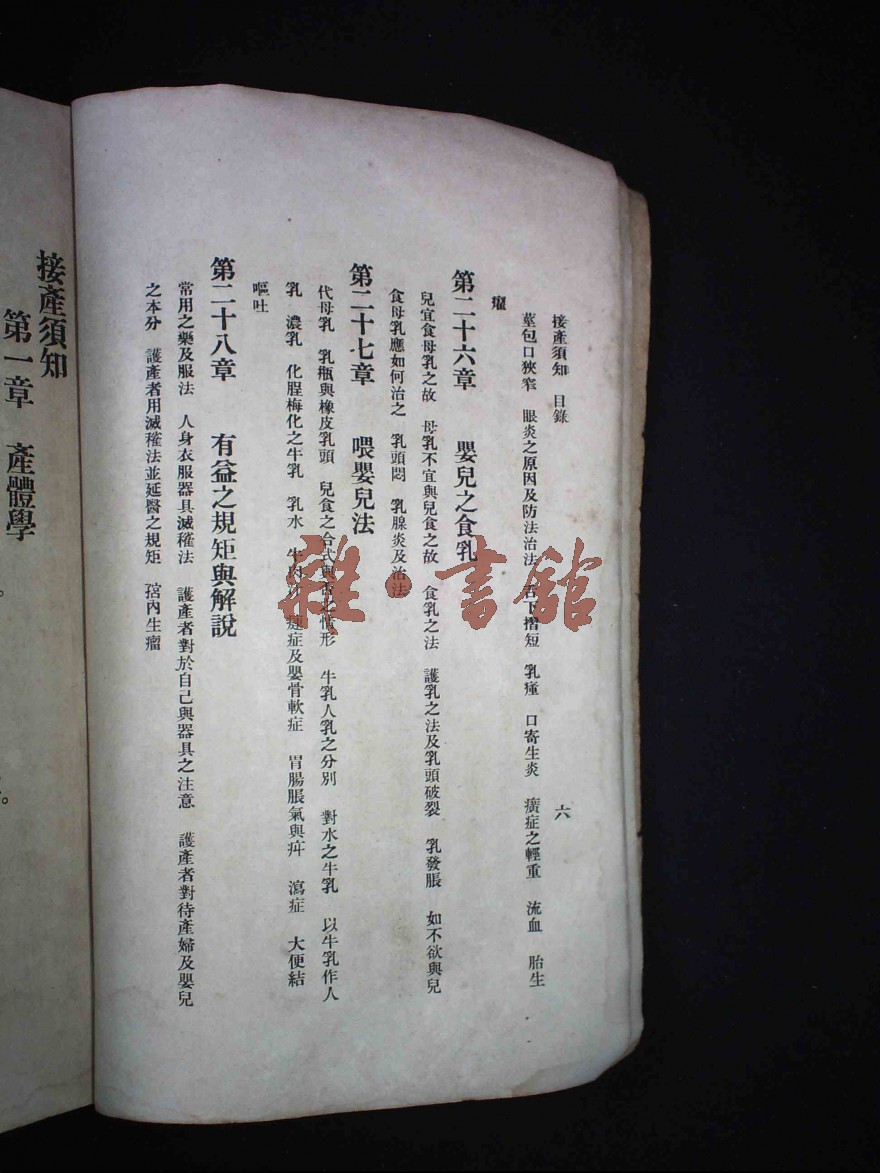 接產須知　目錄　六
莖包口狹窄　眼炎之原因及防法治法　舌下摺短　乳瘇　口寄生炎　癀症之輕重　流血　胎生
瘤
第二十六章　嬰兒之食乳
兒宜食母乳之故　母乳不宜與兒食之故　食乳之法　護乳之法及乳頭破裂　乳發脹　如不欲與兒
食母乳應如何治之　乳頭悶　乳腺炎及治法
第二十七章　喂嬰兒法
代母乳　乳瓶與橡皮乳頭　兒食之合式與否之情形　牛乳人乳之分別　對水之牛乳　以牛乳作人
乳　濃乳　化腥梅化之牛乳　乳水　牛肉汁　症及嬰骨軟症　胃腸脹氣與疝　瀉症　大便結
嘔吐
第二十八章　有益之規矩與解說
常用之藥及服法　人身衣服器具滅䅭法　護產者對於自己與器具之注意　護產者對待產婦及嬰兒
之本分　護產者用滅䅭法並延醫之規矩　內生瘤
接產須知
第一章　產體學
雜·書舘